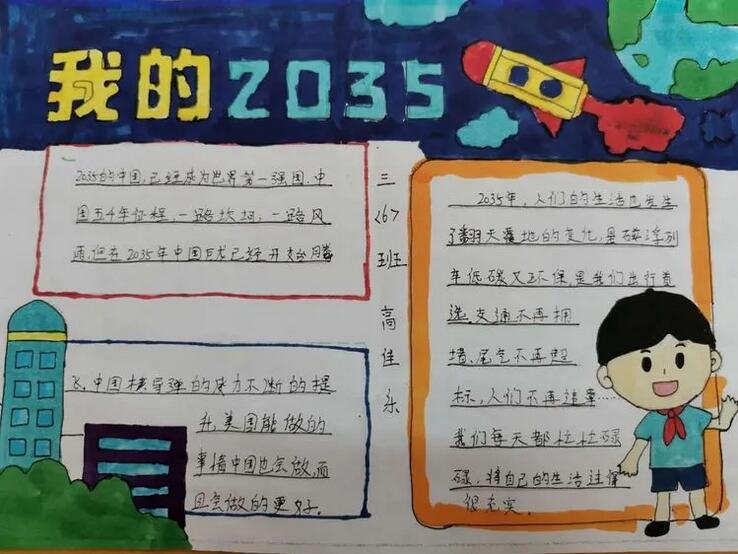 我的2035
2035的中国,已经成为世界第一强国.中
国五4年征程,一路坎坷,一路风
雨,但在2035年中国巨龙已经开始腾
飞,中国核导弹的威力不断的提
升,美国能做的
事情中国也会做,而
且会做的更好.
三
<6>
班
高
佳
乐
2035年,人们的生活也发生
了翻天覆地的变化,悬磁浮列
车低碳又环保,是我们出行首
选.交通不再拥
堵、尾气不再超
标,人们不再追单……
我们每天都忙忙碌
碌,将自己的生活过得
很充实.